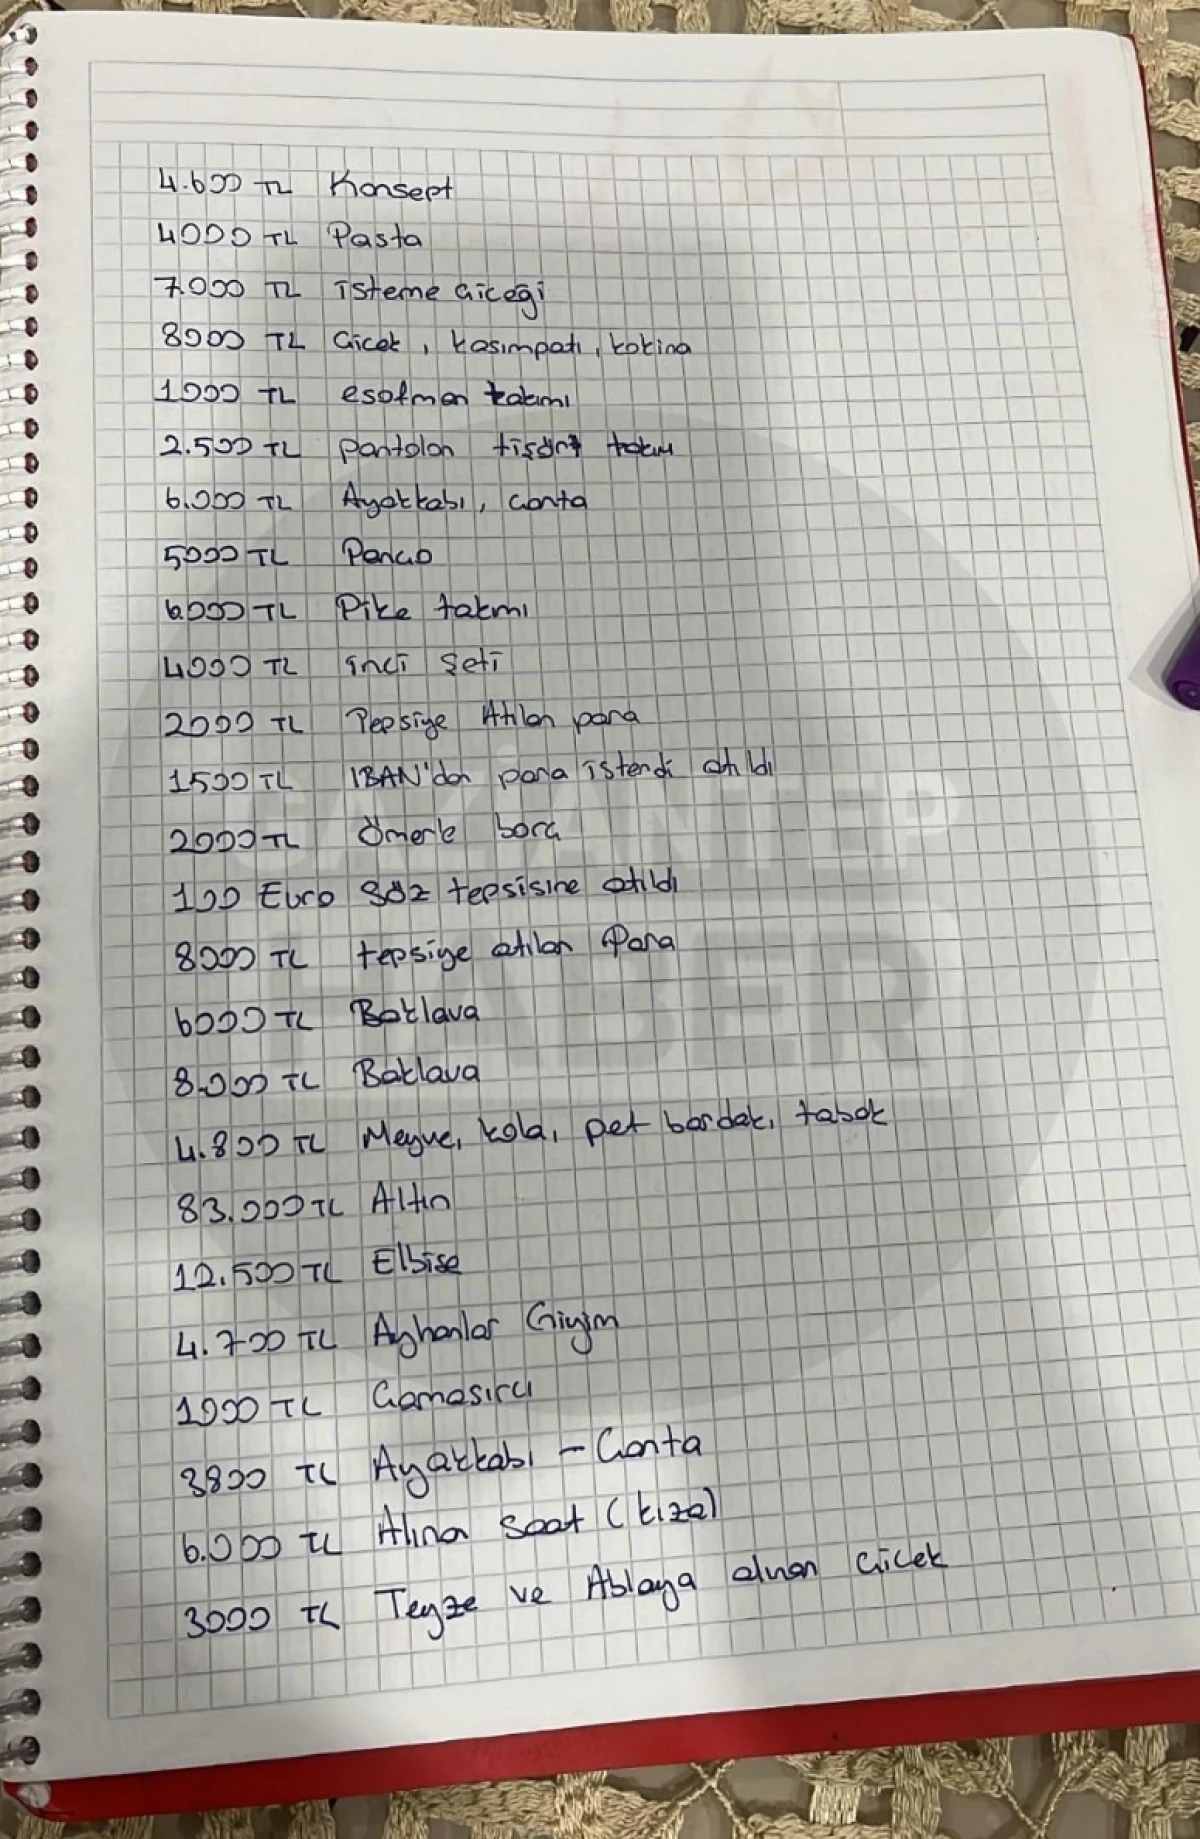 4.600 TL Konsept
4000 TL Pasta
7.000 TL isteme çiçeği
8000 TL Çiçek, kasımpatı, kokina
1000 TL eşofman takımı
2.500 TL pantolon tişört takım
6.000 TL Ayakkabı, çanta
5000 TL Panço
6.000 TL Pike takımı
4000 TL inci seti
2000 TL Tepsiye Atılan para
1500 TL IBAN'dan para istendi atıldı
2000 TL Ömer'e borç
100 Euro Söz tepsisine atıldı
8000 TL tepsiye atılan Para
6000 TL Baklava
8.000 TL Baklava
4.800 TL Meyve, kola, pet bardak, tabak
83.000 TL Altın
12.500 TL Elbise
4.700 TL Ayhanlar Giyim
1000 TL Çamaşırcı
3800 TL Ayakkabı - Çanta
6.000 TL Alınan Saat (kıza)
3000 TL Teyze ve Ablaya alınan çiçek
GAZİANTEP
HABER